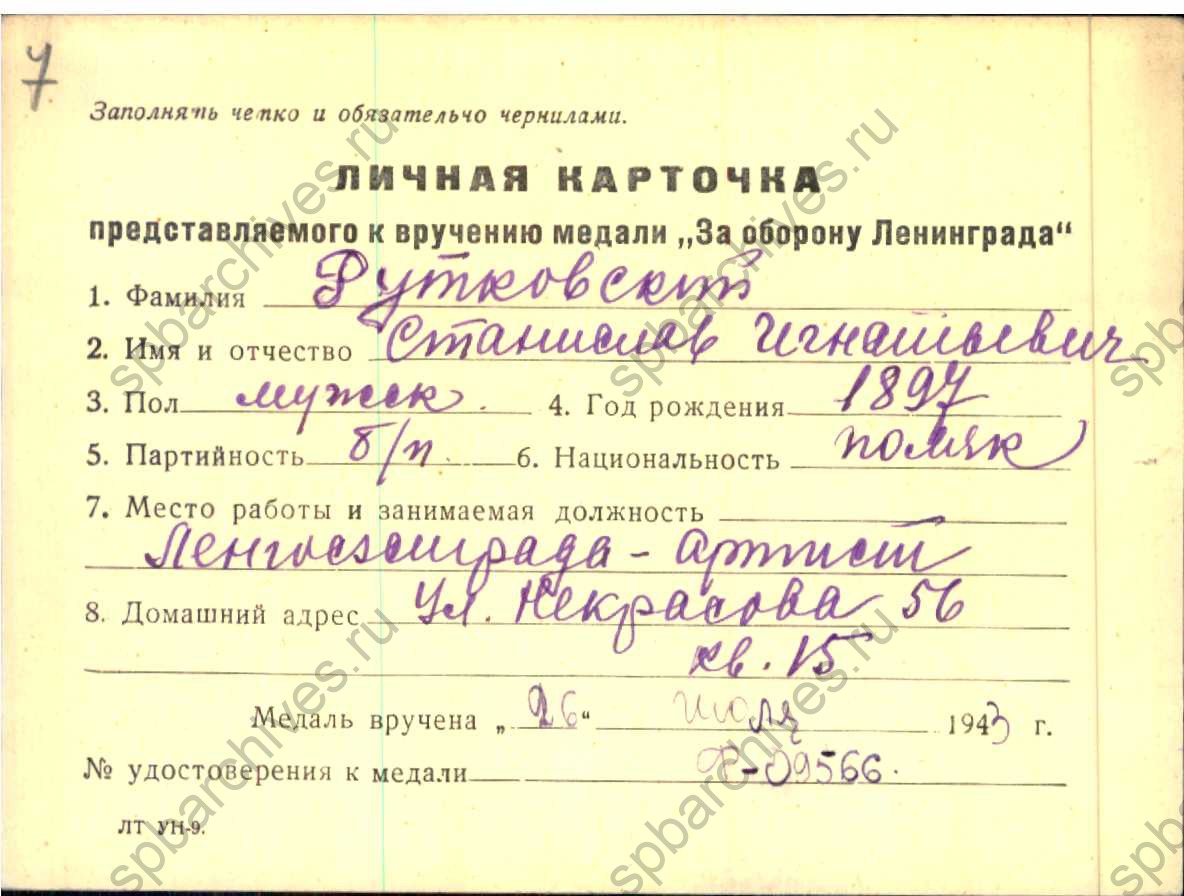 7
Заполнять четко и обязательно чернилами.
ЛИЧНАЯ КАРТОЧКА
представляемого к вручению медали „За оборону Ленинграда“
1. Фамилия Рутковский
2. Имя и отчество Станислав Игнатьевич
3. Пол мужск. 4. Год рождения 1897
5. Партийность б/п. 6. Национальность поляк
7. Место работы и занимаемая должность
Ленгосэстрада - артист
8. Домашний адрес Ул. Некрасова 56
кв. 15
Медаль вручена „26“ июля 1943 г.
№ удостоверения к медали -09566.
ЛТ УН-9.
spbarchives.ru
spbarchives.ru
spbarchives.ru
spbarchives.ru